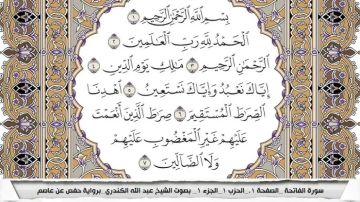 بِسْمِ اللَّهِ الرَّحْمَٰنِ الرَّحِيمِ ١
الْحَمْدُ لِلَّهِ رَبِّ الْعَالَمِينَ ٢
الرَّحْمَٰنِ الرَّحِيمِ ٣ مَالِكِ يَوْمِ الدِّينِ ٤
إِيَّاكَ نَعْبُدُ وَإِيَّاكَ نَسْتَعِينُ ٥ اهْدِنَا
الصِّرَاطَ الْمُسْتَقِيمَ ٦ صِرَاطَ الَّذِينَ أَنْعَمْتَ
عَلَيْهِمْ غَيْرِ الْمَغْضُوبِ عَلَيْهِمْ
وَلَا الضَّالِّينَ ٧
سورة الفاتحة _ الصفحة ١ _ الحزب ١ _ الجزء ١ _ بصوت الشيخ عبد الله الكندري _ برواية حفص عن عاصم